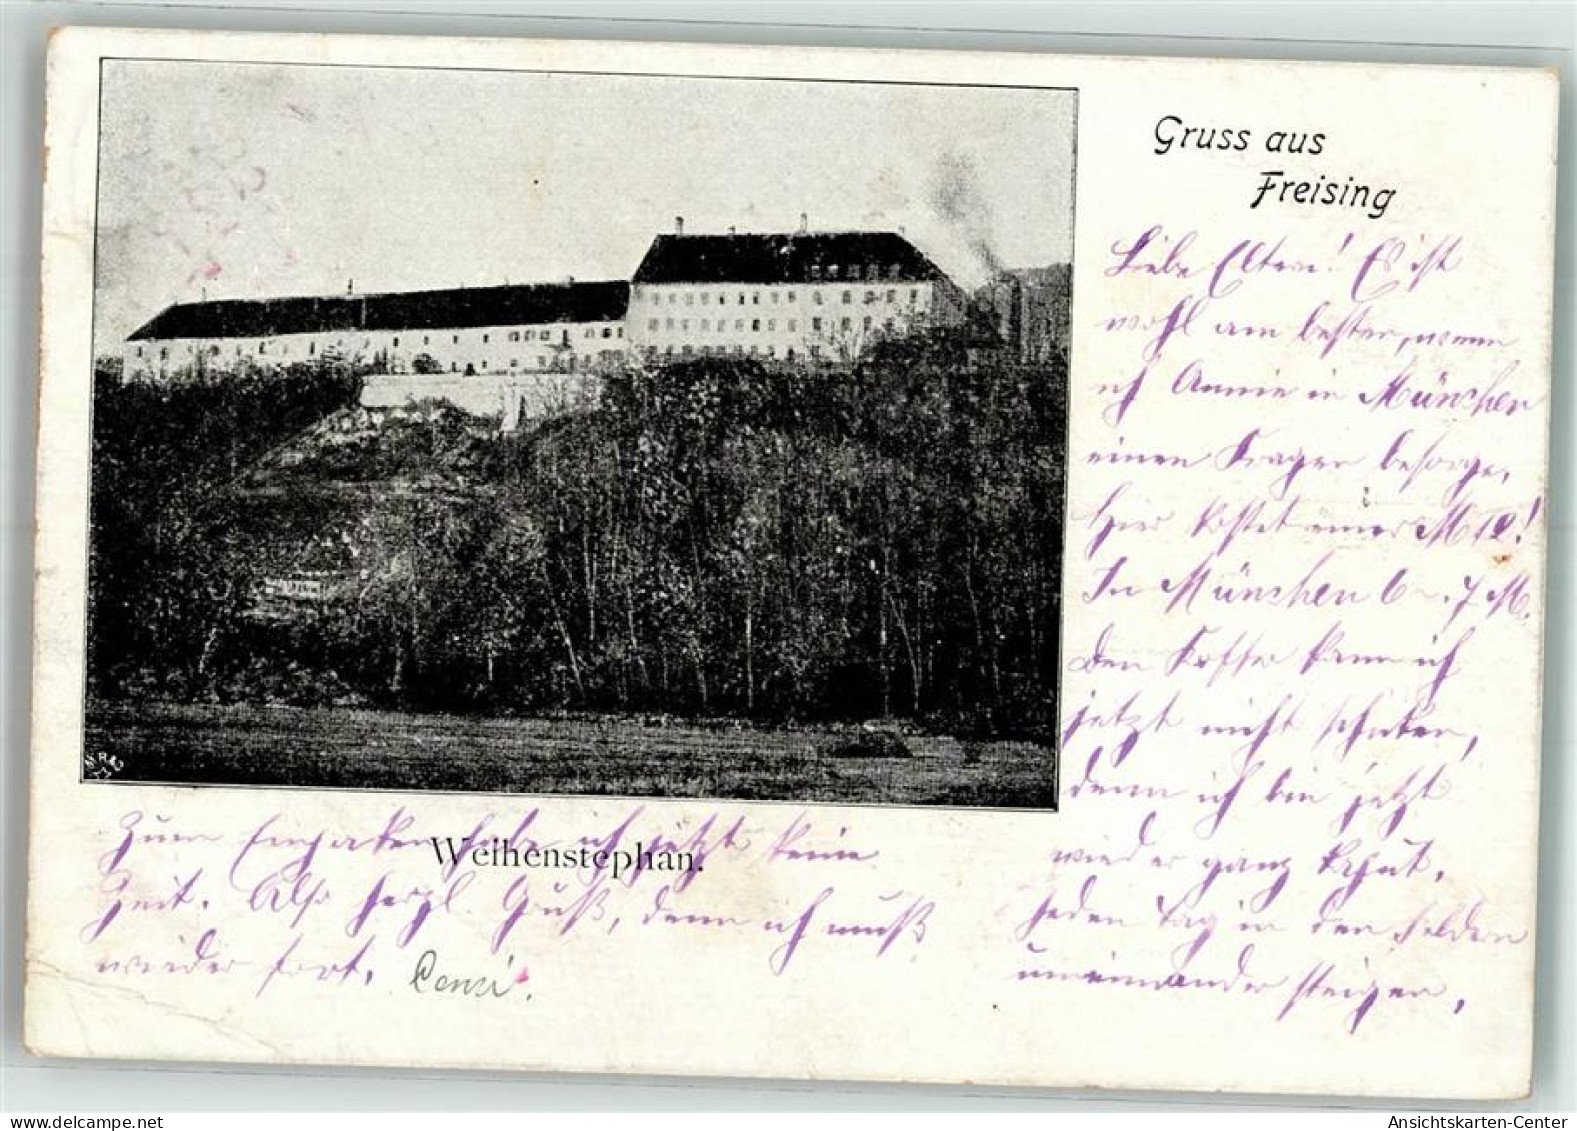 Gruss aus
Freising
Liebe Eltern! Es ist
wohl am besten, wenn
ich Annie in München
einen Kragen besorge,
Hier kostet einer M
In München 6 - 7 M.
Den Koffer kann ich
jetzt nicht schicken,
denn ich bin jetzt
wieder ganz kaput,
jeden Tag in den Feldern
umeinander steigen,
Zum Einpacken habe ich jetzt keine
Weihenstephan.
Zeit. Also herzl. Gruß, denn ich muß
wieder fort. Cenzi.
Ansichtskarten-Center